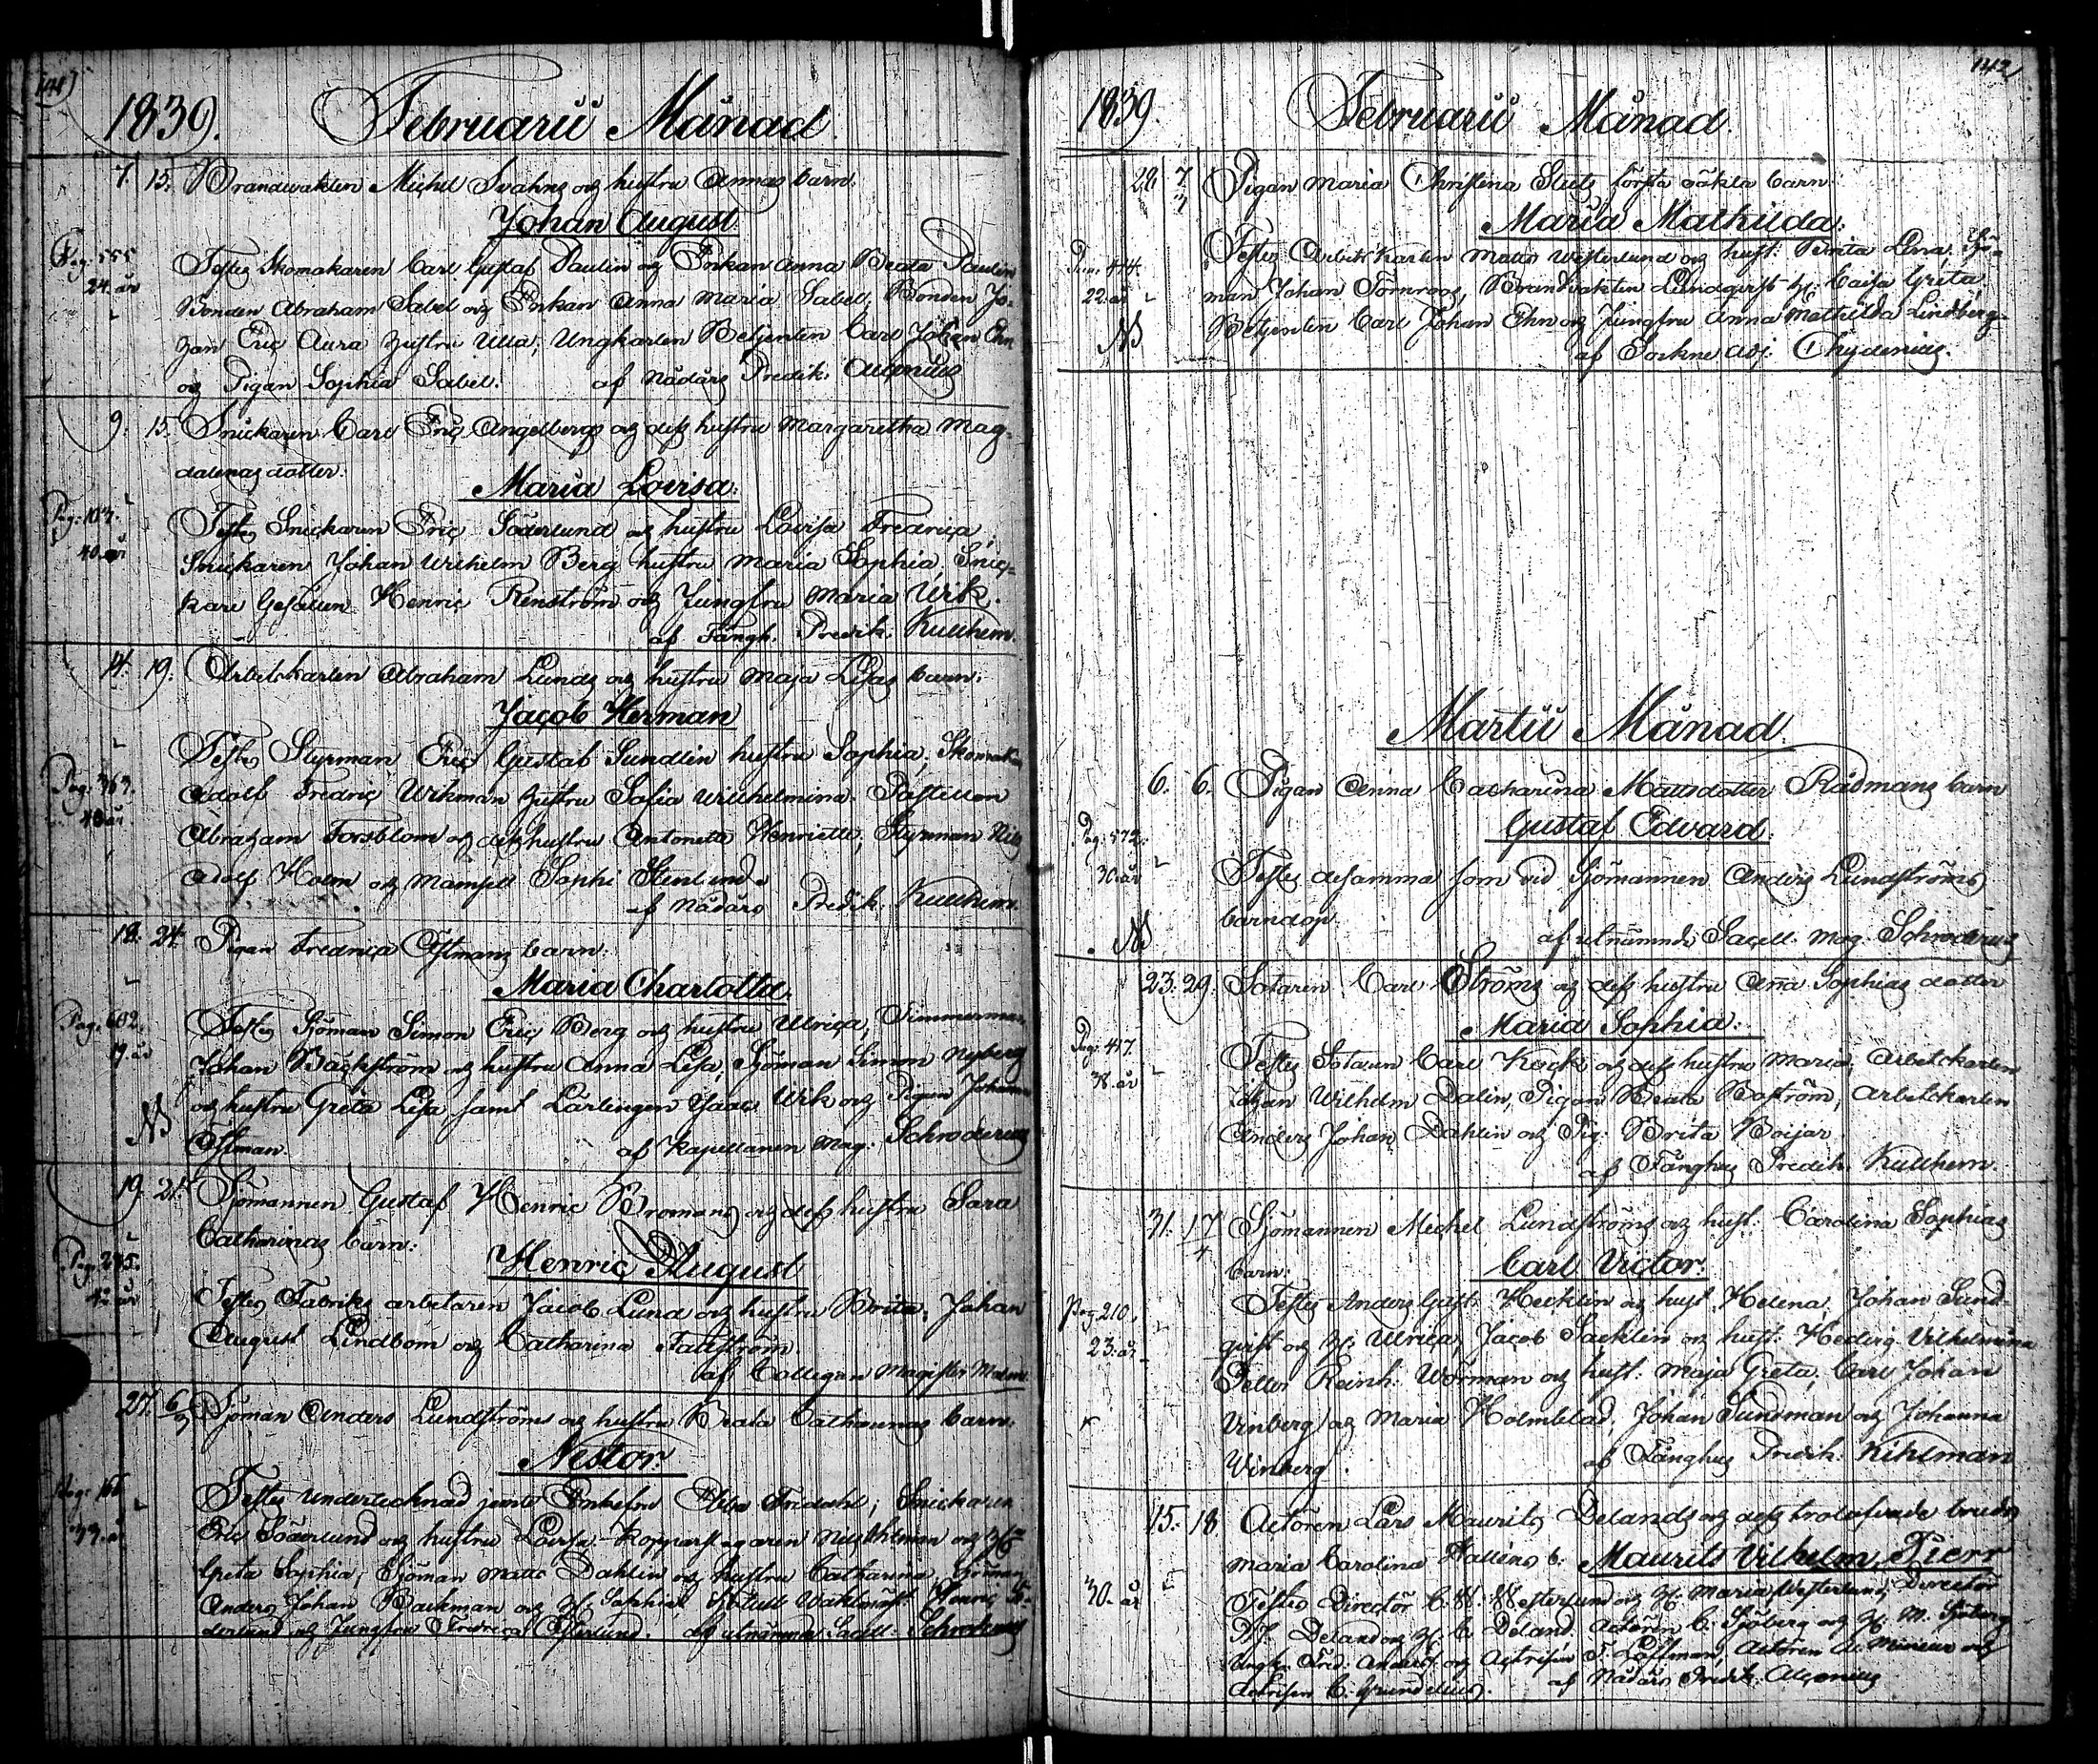 141
1839. Februarii Månad.
7. 15. Brandvakten Michel Svahns och hustru Annas barn.
Johan August.
Pag: 555
24. år
Testes Skomakaren Carl Gustaf Paulin och Enkan Anna Beata Paulin
Bonden Abraham Sabel och Enkan Anna Maria Sabell, Bonden Jo-
han Eric Aura hustru Ulla, Ungkarlen Betjenten Carl Johan Ehn
och Pigan Sophia Sabel. af Nådårs Predik. Alcenius
9. 15. Snickaren Carl Eric Angelbergs och dess hustru Margaretha Mag-
dalenas dotter:
Maria Lovisa.
Pag: 103.
40. år
Testes Snickaren Eric Söderlund och hustru Lovisa Fredrica,
Snickaren Johan Wilhelm Berg hustru Maria Sophia, Snic-
kare Gesällen Henric Renström och Jungfru Maria Wik.
af Fångh. Predik. Kullhem.
14. 19. Arbetskarlen Abraham Lunds och hustru Maja Lisas barn:
Jacob Herman
Pag: 363.
40 år
Testes Styrman Eric Gustaf Sundlin hustru Sophia, Skomak
Adolf Fredric Wikman hustru Sofia Willhelmina. Postillon
Abraham Forsblom och dess hustru Antonetta Henriette, Styrman Nils
Adolf Holm och Mamsell Sophi Stenlund.
af Nådårs Predik. Kullhem.
18. 24. Pigan Fredrica Östmans barn:
Maria Charlotta.
Pag: 602.
19. år
Testes Sjöman Simon Eric Berg och hustru Ulrica, Timmerman
Johan Bäckström och hustru Anna Lisa, Sjöman Simon Nyberg
och hustru Greta Lisa, samt Lärlingen Isaac Wik och Pigan Johanna
NB
Östman. af Kapellanen Mag: Schroderus
19. 21. Sjömannen Gustaf Henric Bromans och dess hustru Sara
Catharinas barn:
Henric August
Pag: 245.
42 år
Testes Fabriks arbetaren Jacob Lund och hustru Brita, Johan
August Lindbom och Catharina Fallström.
af Collegan Magister Malm
27. 6/3 Sjöman Anders Lundströms och hustru Beata Catharinas barn:
Nestor.
Pag: 166
39. år
Testes undertecknad jemte Enkefru Ebba Fredahl; Snickaren
Eric Söderlund och hustru Lovisa. Kopparslagaren Öhman och H:
Greta Sophia; Sjöman Matts Dahlin och hustru Catharina, Sjöman
Anders Johan Backman och H: Sophia, Henric Sö-
derlund och Jungfru Fredrica Österlund. af utnämnde Sacell. Schroderus
142
1839. Februarii Månad.
28 7/3 Pigan Maria Christina Stuts första oäkta barn:
Maria Mathilda.
Pag: 444.
22. år
Testes Arbetskarlen Matts Westerlund och hust: Brita Lena, Sjö-
man Johan Törnroos, Brandvakten Lundqvist H: Caisa Greta,
Betjenten Carl Johan Ehn och Jungfru Anna Mathilda Lindberg.
NB
af Sockne Adj. Chydenius.
Martii Månad.
6. 6. Pigan Anna Catharina Mattsdotter Rådmans barn
Gustaf Edvard.
Pag: 572.
30. år
Testes desamma som vid Sjömannen Anders Lundströms
barndop.
NB
af utnämnde Sacell. Mag. Schroderus
23. 29. Sotaren Carl Ströms och dess hustru Anna Sophias dotter
Maria Sophia.
Pag: 417.
38. år
Testes Sotaren Carl Keck och dess hustru Maria, Arbetskarlen
Johan Wilhelm Dalin, Pigan Beata Boström, Arbetskarlen
Anders Johan Dahlin och Pig: Brita Boijar
af Fånghus Predik. Kullhem.
31. 17/4 Sjömannen Michel Lundströms och hust: Carolina Sophias
barn:
Carl Victor.
Pag: 210.
23. år
Testes Anders Gust: Hecklin och hust. Helena, Johan Sund-
qvist och H: Ulrica, Jacob Sacklin och hust. Hedvig Vilhelmina
Petter Reinh: Wörman och hust: Maja Greta, Carl Johan
Vinberg och Maria Holmblad, Johan Sundman och Johanna
Winberg. af Fånghus Predik. Kihlman
15. 18 Actören Lars Maurits Delands och dess trolofvade bruds
Maria Carolina Halléns b: Maurits Vilhelm Pierr
30. år
Testes Director C. W. Westerlund och H: Maria Westerlund, Director
P. Deland och H: C. Deland, Actören C. Sjöberg och H: M. Sjöberg
Ungk. Fred: Anders och Actrisen F. Löfman, Actören A. och
Actrisen C. Grundelius. af Nådårs Predik. Alcenius